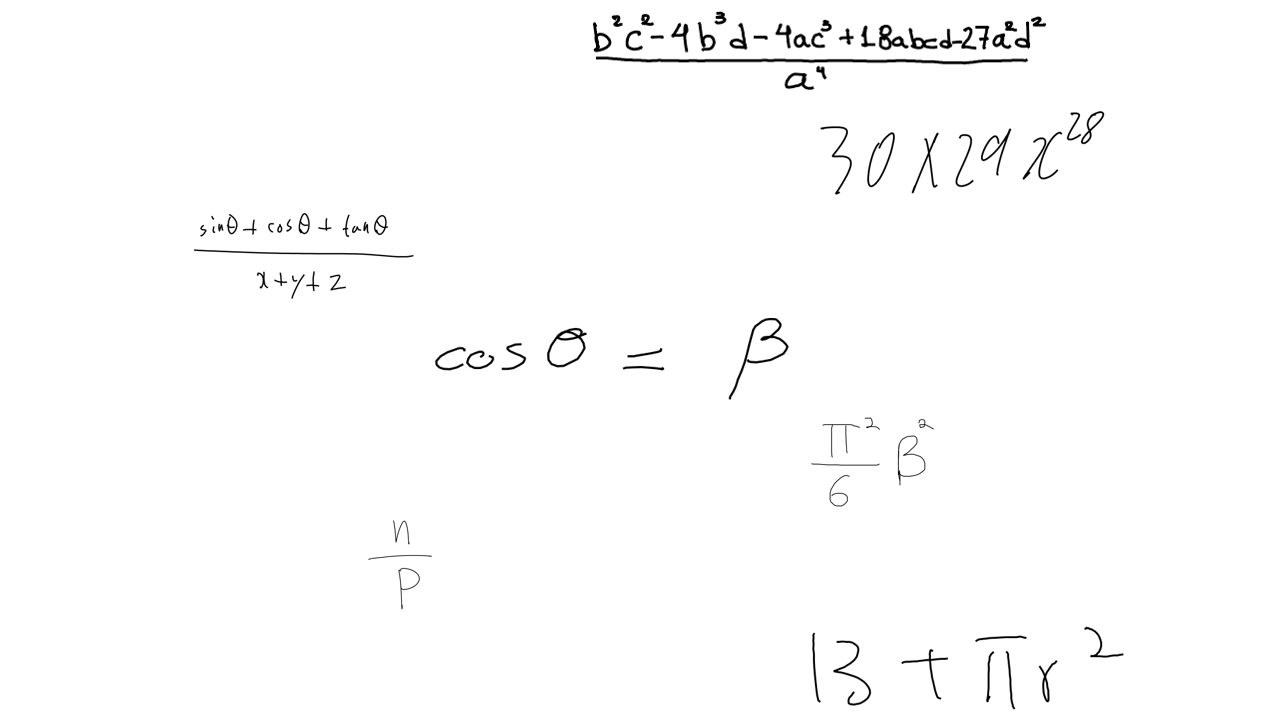 \frac{b^2c^2-4b^3d-4ac^3+18abcd-27a^2d^2}{a^4}
30 \times 29 x^{28}
\frac{\sin\theta+\cos\theta+\tan\theta}{x+y+z}
\cos\theta = \beta
\frac{\pi^2}{6}\beta^2
\frac{n}{p}
13+\pi r^2